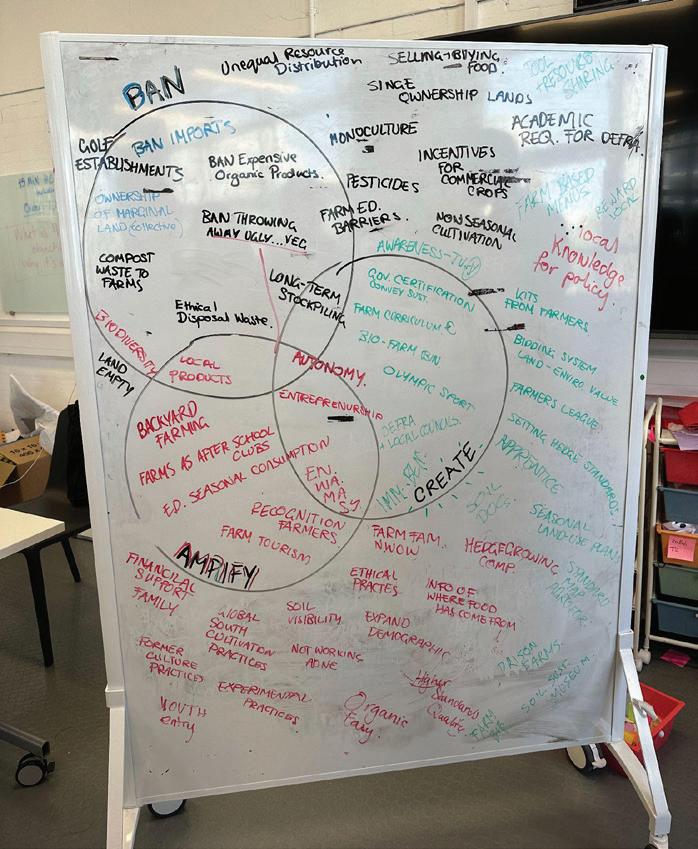 BAN
Unequal Resource
Distribution
SELLING-BUYING
FOOD.
SINGE
OWNERSHIP LANDS
RESOURCE
SHARING
ACADEMIC
REQ. FOR DEFRA
GOLF
ESTABLISHMENTS
BAN IMPORTS
BAN Expensive
Organic Products.
MONOCULTURE
INCENTIVES
FOR
COMMERCIAL
CROPS
PESTICIDES
FARM BASED
MENUS
REWARD
LOCAL
OWNERSHIP
OF MARGINAL
LAND (collective)
BAN THROWING
AWAY UGLY...VEG
FARM ED.
BARRIERS.
NON SEASONAL
CULTIVATION
AWARENESS-TV
local
Knowledge
for policy.
COMPOST
WASTE TO
FARMS
LONG-TERM
STOCKPILING
GOV. CERTIFICATION
CONVEY SUST.
KITS
FROM FARMERS
Ethical
Disposal Waste.
FARM CURRICULUM
BIO-FARM
BIDDING SYSTEM
LAND-ENVIRO VALUE
BIODIVERSITY
LAND
EMPTY
LOCAL
PRODUCTS
AUTONOMY.
OLYMPIC SPORT
FARMERS LEAGUE.
ENTREPRENURSHIP
BACKYARD
FARMING
DEFRA
+ LOCAL COUNCILS.
SETTING HEDGE STANDARDS.
APPRENTICE
FARMS AS AFTER SCHOOL
CLUBS
ED. SEASONAL CONSUMPTION
EN.
WA.
MA
SY.
CREATE
SOIL
DOCS.
SEASONAL
LAND-USE PLAN
RECOGNITION
FARMERS
FARM TOURISM
AMPIFY
FARM FAM.
NWOW
HEDGEGROWING
COMP.
STANDARD
MAP
FINANCILAL
SUPPORT
FAMILY
ETHICAL
PRACTES
INFO OF
WHERE FOOD
HAS COME FROM
GLOBAL
SOUTH
CULTIVATION
PRACTICES
SOIL
VISIBILITY
EXPAND
DEMOGRAPHIC
FORMER
CULTURE
PRACTICES
NOT WORKING
AONE
PRISON
FARMS
Higher
Standards
Quality.
SOIL SUST.
MUSEUM
EXPERIMENTAL
PRACTICES
YOUTH
entry
Organic
FARM